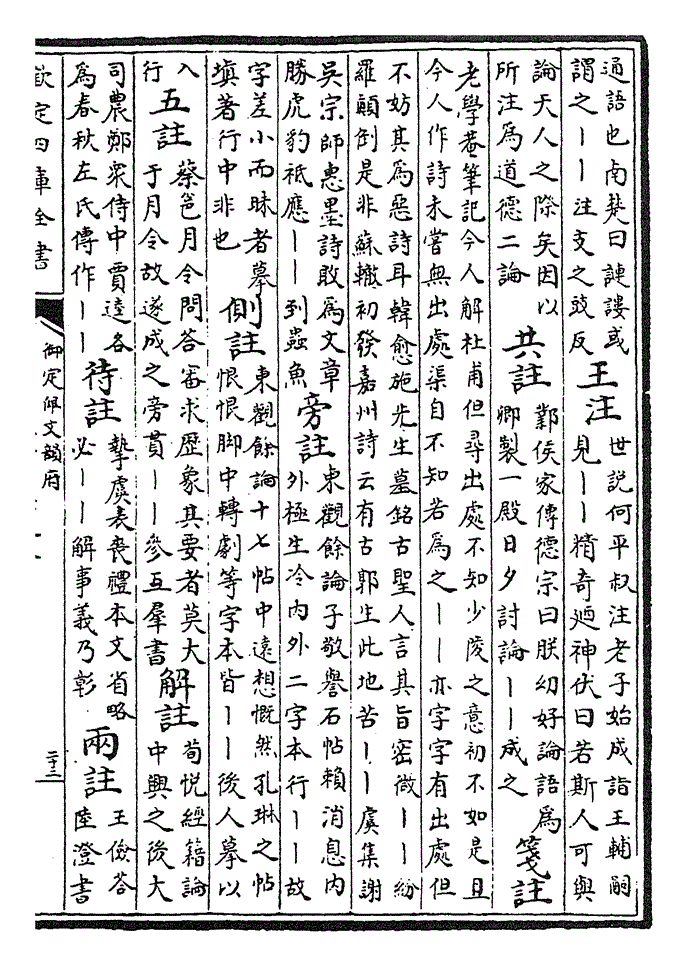 通語也南楚曰謰謱或
謂之丨丨注支之豉反
王注
世說何平叔注老子始成詣王輔嗣
見丨丨精奇廼神伏曰若斯人可與
論天人之際矣因以
所注為道德二論
共註
鄴侯家傳德宗曰朕幼好論語為
卿製一殿日夕討論丨丨成之
箋註
老學菴筆記今人解杜甫但尋出處不知少陵之意初不如是且
今人作詩未嘗無出處渠自不知若為之丨丨亦字字有出處但
不妨其為惡詩耳韓愈施先生墓銘古聖人言其旨密微丨丨紛
羅顛倒是非蘇轍初發嘉州詩云有古郭生此地苦丨丨虞集謝
吳宗師惠墨詩敢為文章
勝虎豹祗應丨丨到蟲魚
旁註
東觀餘論子敬譽石帖頼消息内
外極生冷内外二字本行丨丨故
字差小而昧者摹
填著行中非也
側註
東觀餘論十七帖中遠想慨然孔琳之帖
恨恨脚中轉劇等字本皆丨丨後人摹以
入
行
五註
蔡邕月令問答審求歴象其要者莫大
于月令故遂成之旁貫丨丨參互羣書
解註
荀悦經籍論
中興之後大
司農鄭衆侍中賈逵各
為春秋左氏傳作丨丨
待註
摯虞表喪禮本文省略
必丨丨解事義乃彰
兩註
王儉荅
陸澄書
欽定四庫全書
御定佩文韻府
二十三